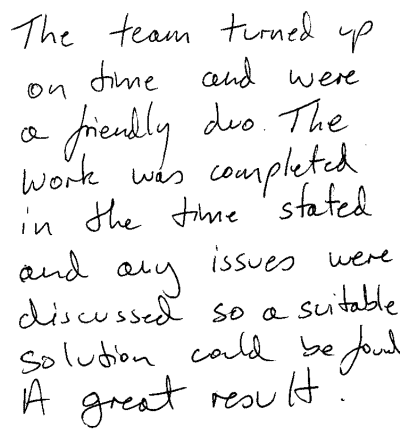 The team turned up
on time and were
a friendly duo. The
work was completed
in the time stated
and any issues were
discussed so a suitable
solution could be found
A great result.